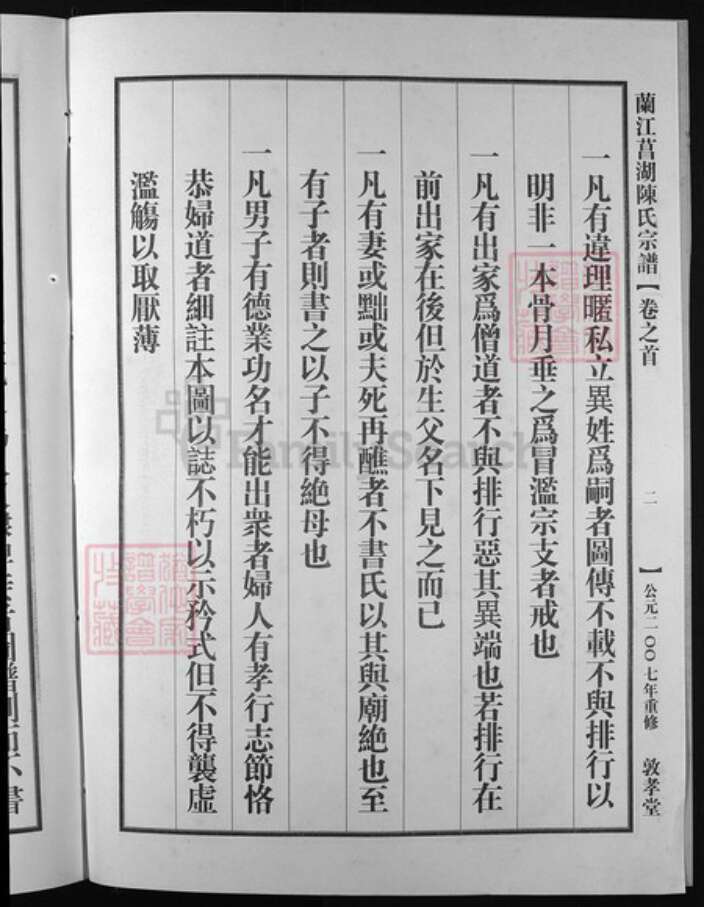 蘭江菖湖陳氏宗譜【卷之首 二 】公元二〇〇七年重修 敦孝堂
一凡有違理暱私立異姓爲嗣者圖傳不載不與排行以
明非一本骨月垂之爲冒濫宗支者戒也
一凡有出家爲僧道者不與排行惡其異端也若排行在
前出家在後但於生父名下見之而已
一凡有妻或黜或夫死再醮者不書氏以其與廟絶也至
有子者則書之以子不得絶母也
一凡男子有德業功名才能出衆者婦人有孝行志節恪
恭婦道者細註本圖以誌不朽以示矜式但不得襲虛
濫觴以取厭薄
FamilySearch